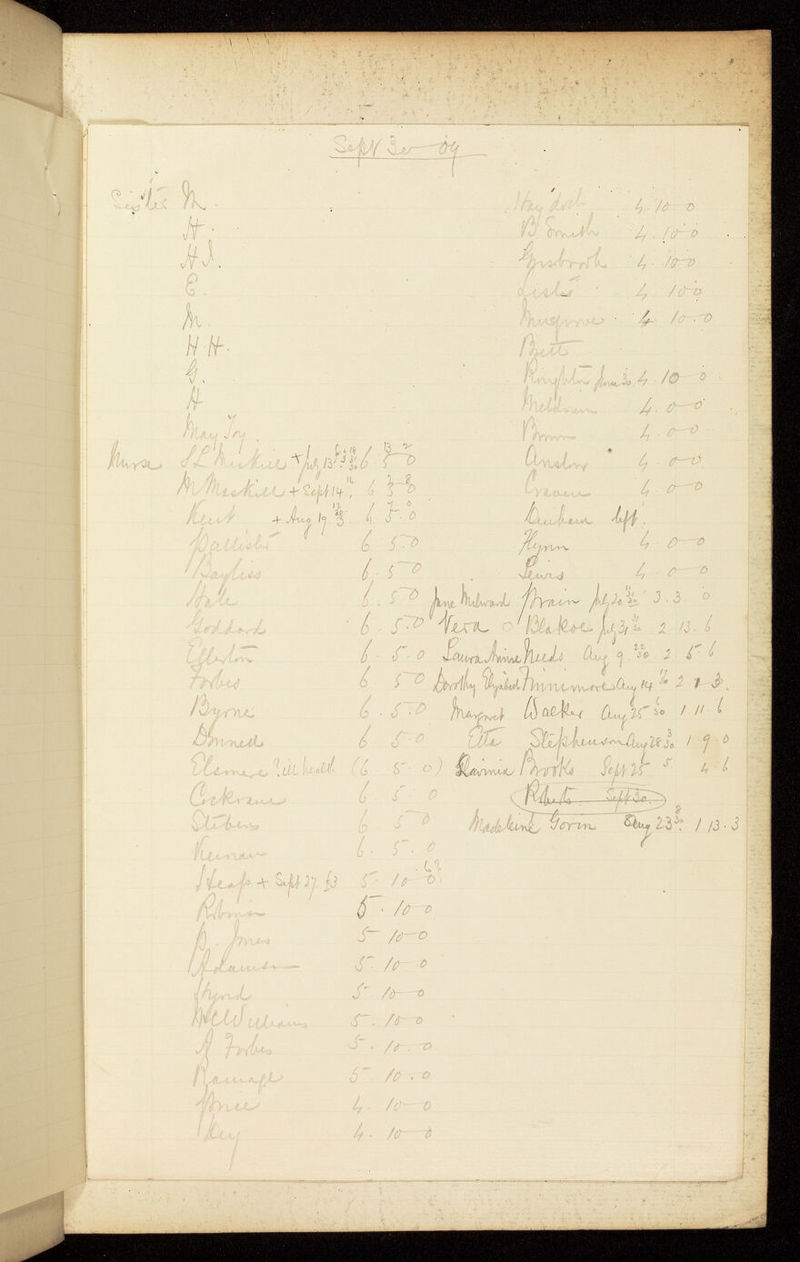 Sept 30 09
Sister M. Haydock 4. 10 0
H. B Smith 4. 10 0
H I. 4. 10 0
E. Lister 4. 10 0
M. Musgrove 4. 10. 0
H H. Brett
G. June 30 4 10 0
H Meldrum 4. 0 0
May Joy. Brown 4. 0 0
Nurse S L Maskill + July 13 6 5 0 Anslow 4. 0 0
M Maskill + Sept 14 6 5 0 Craven 4. 0 0
Kent + Aug 19 6 5. 0 Denham left.
Pallister 6 5. 0 Flynn 4 0 0
Bayliss 6. 5 0 Lewis 4. 0 0
Hale 6. 5 0 Jane Milward July 20 3. 3. 0
Goddard 6. 5. 0 Vera Blakoe July 31 2 13. 6
Egerton 6. 5. 0 Laura Annie Needs Aug 9 2 5 6
Forbes 6 5 0 Dorothy Elizabeth Finnimore Aug 14
Byrne 6. 5. 0 Margaret Walker Aug 25 1 11 6
Donnell 6 5 0 Etta Stephenson Aug 28 1 9 0
Elsmere ? ill health (6 5 0) Brooks Sept 25 4. 6
Cockrane 6 5 0 Roberts Sept 30
Stubens 6 5 0 Madeleine Gorin Aug 23 1 13. 3
Keenan 6. 5. 0
Heap + Sept 27 £3 5. 10 0
Robinson 5. 10 0
Jones 5 10 0
Adamson 5. 10 0
5 10 0
McWilliams 5. 10 0
A Forbes 5. 10. 0
Ramage 5 10. 0
Price 4. 10 0
Dey 4. 10 0